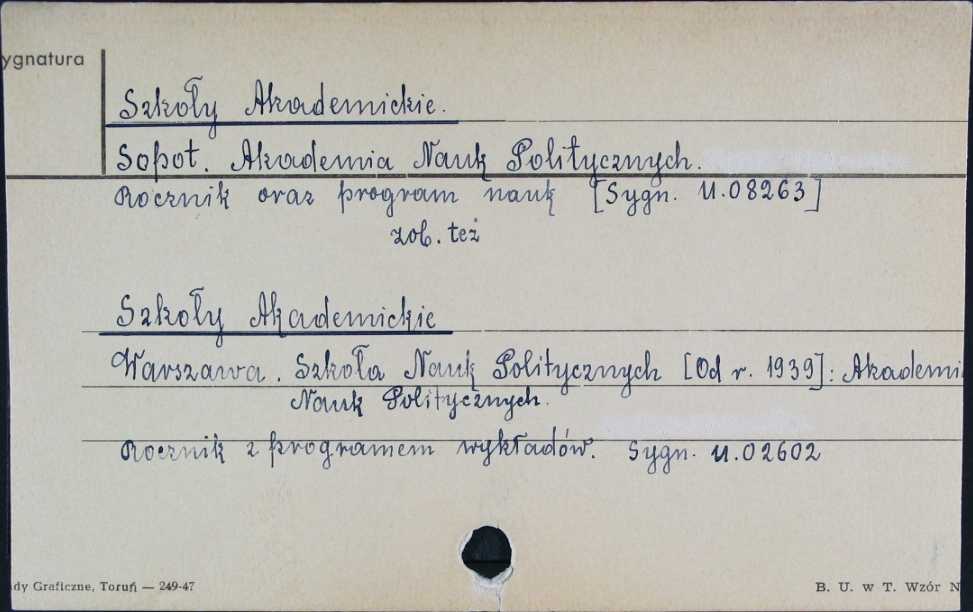 ygnatura
Szkoły Akademickie.
Sopot. Akademia Nauk Politycznych.
Rocznik oraz program nauk [Sygn. U.08263]
zob. też
Szkoły Akademickie
Warszawa. Szkoła Nauk Politycznych [Od r. 1939]: Akademi
Nauk Politycznych.
Rocznik z programem wykładów. Sygn. U.02602
dy Graficzne, Toruń — 249-47
B. U. w T. Wzór N